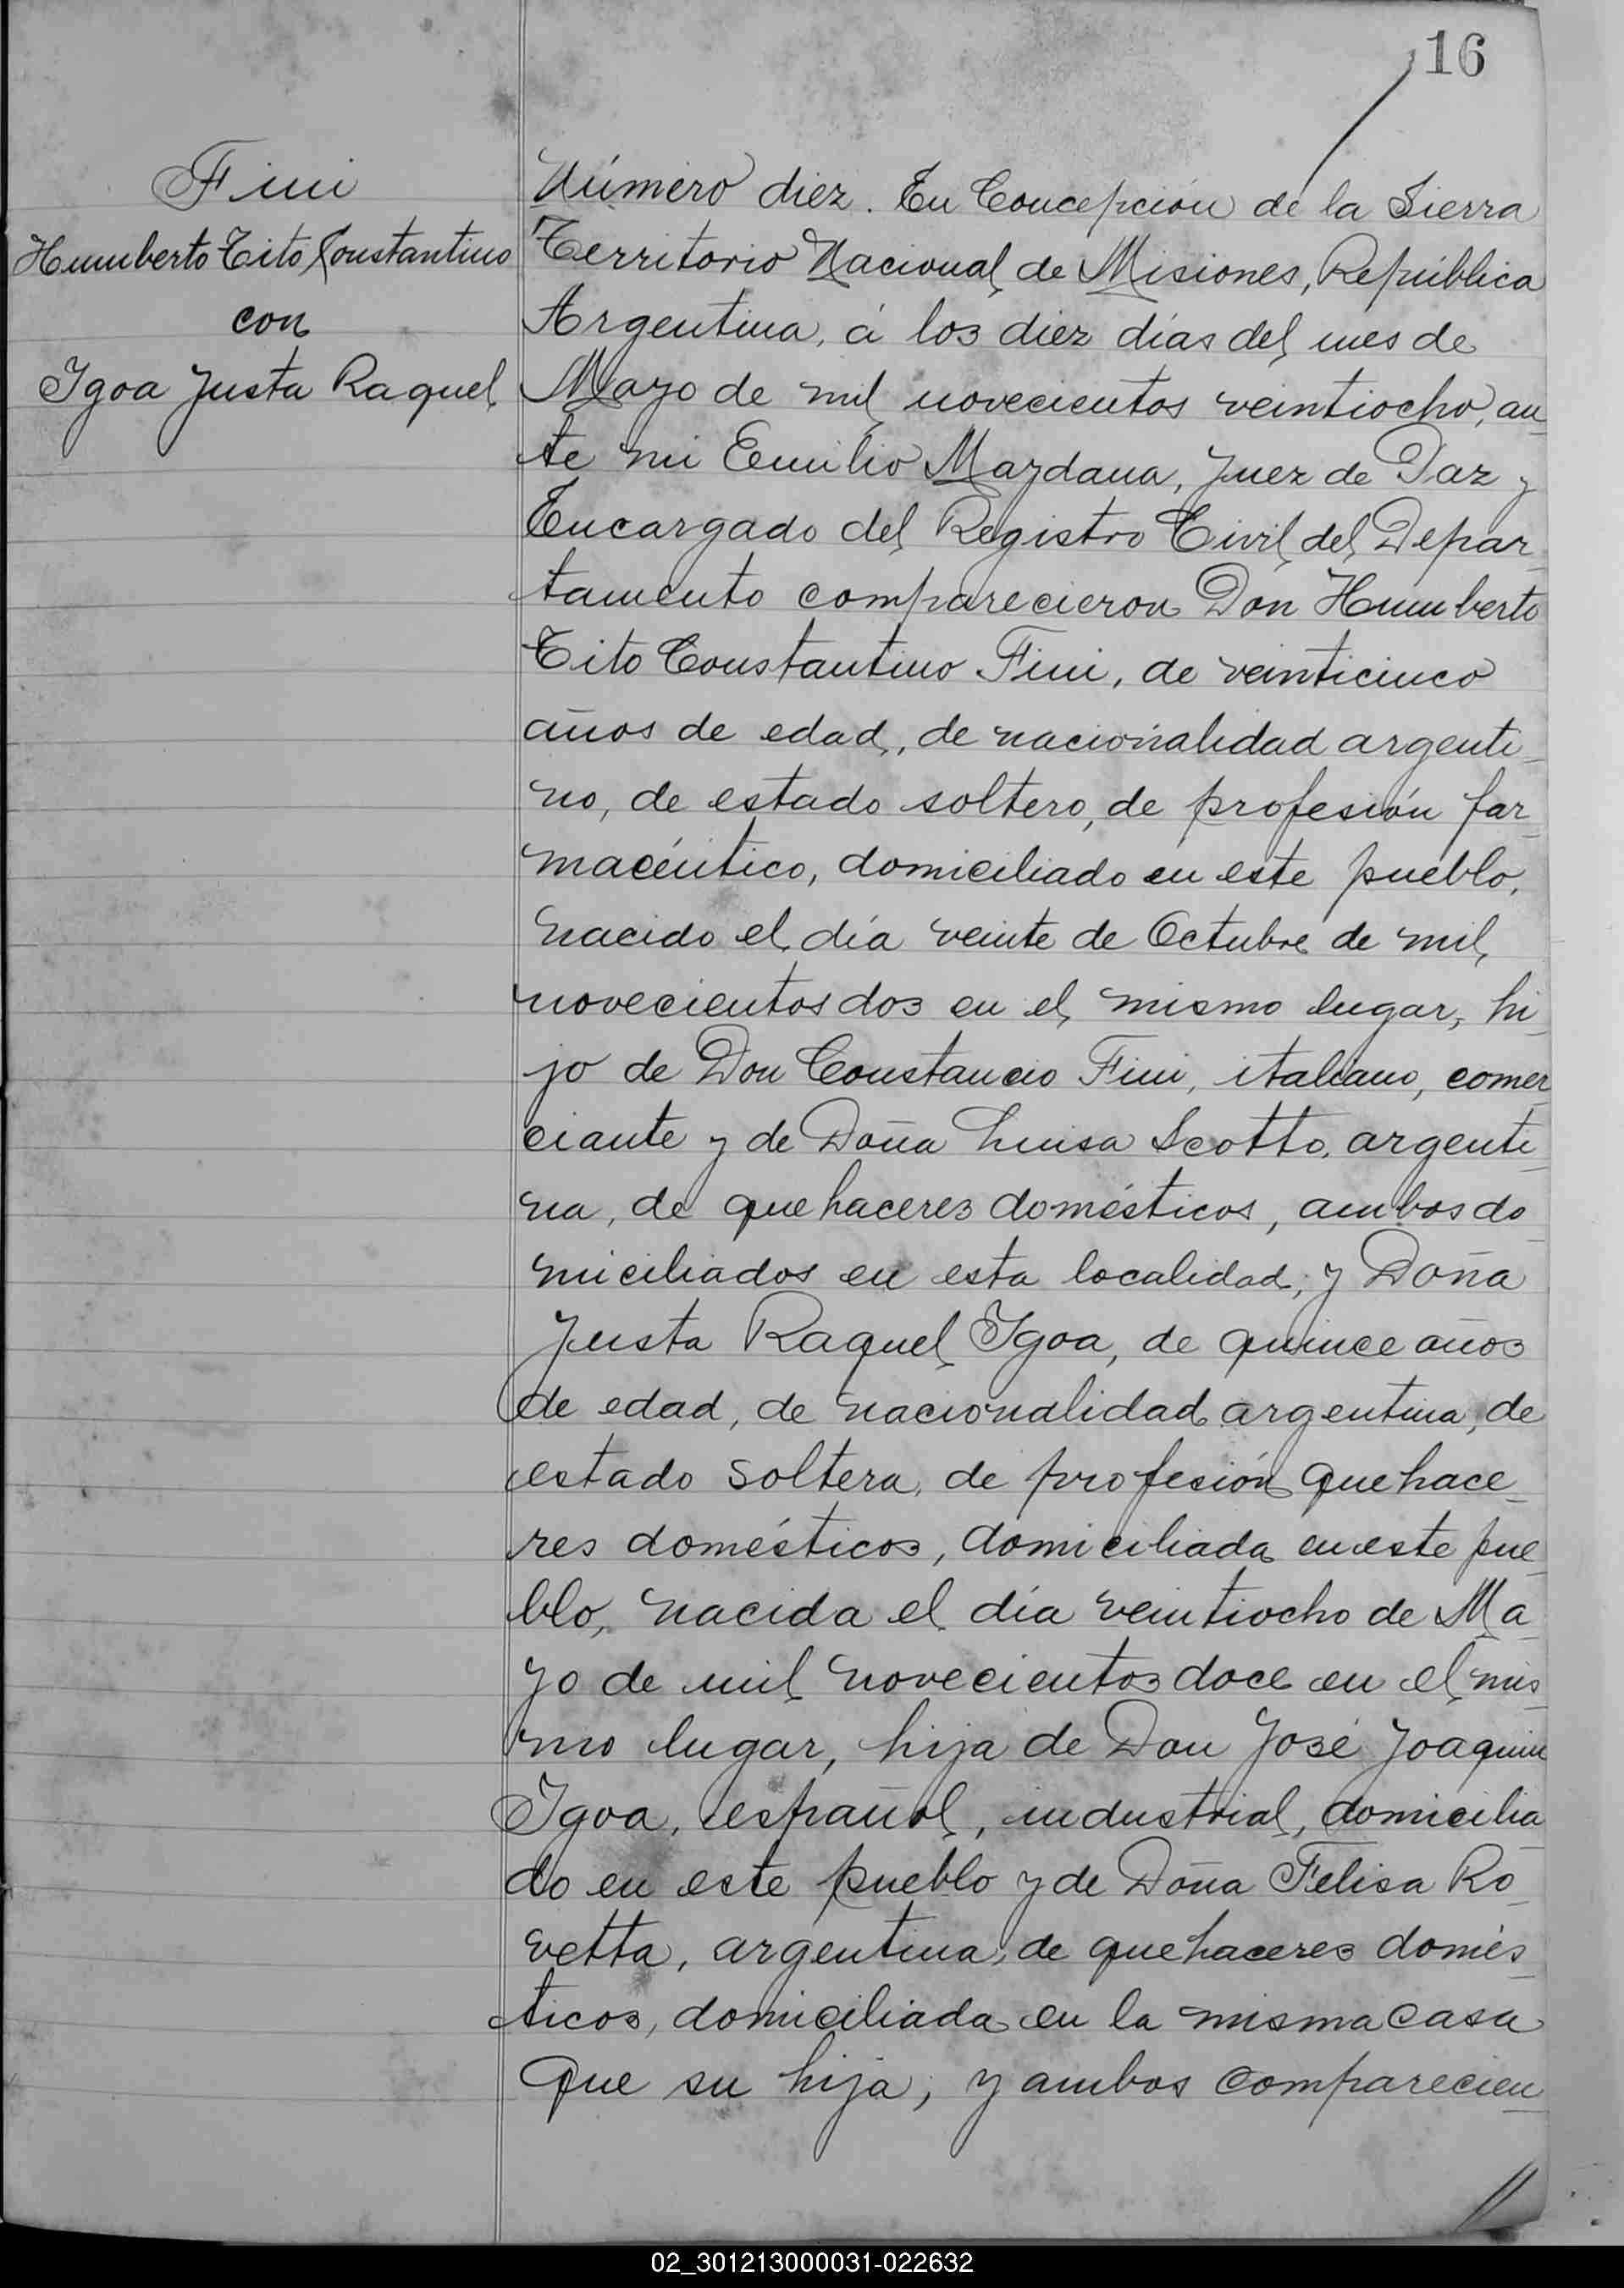 16
Fini
Humberto Tito Constantino
con
Igoa Justa Raquel
Número diez. En Concepción de la Sierra
Territorio Nacional de Misiones, República
Argentina, á los diez días del mes de
Mayo de mil novecientos veintiocho, an
te mi Emilio Maydana, Juez de Paz y
Encargado del Registro Civil del Depar
tamento comparecieron Don Humberto
Tito Constantino Fini, de veinticinco
años de edad, de nacionalidad argenti
no, de estado soltero, de profesión far
macéutico, domiciliado en este pueblo,
nacido el día veinte de Octubre de mil
novecientos dos en el mismo lugar, hi
jo de Don Constancio Fini, italiano, comer
ciante y de Doña Luisa Scotto, argenti
na, de quehaceres domésticos, ambos do
miciliados en esta localidad; y Doña
Justa Raquel Igoa, de quince años
de edad, de nacionalidad argentina, de
estado soltera, de profesión quehace
res domésticos, domiciliada en este pue
blo, nacida el día veintiocho de Ma
yo de mil novecientos doce en el mis
mo lugar, hija de Don José Joaquin
Igoa, español, industrial, domicilia
do en este pueblo y de Doña Felisa Ro
vetta, argentina, de quehaceres domés
ticos, domiciliada en la misma casa
que su hija; y ambos comparecien
02_301213000031-022632